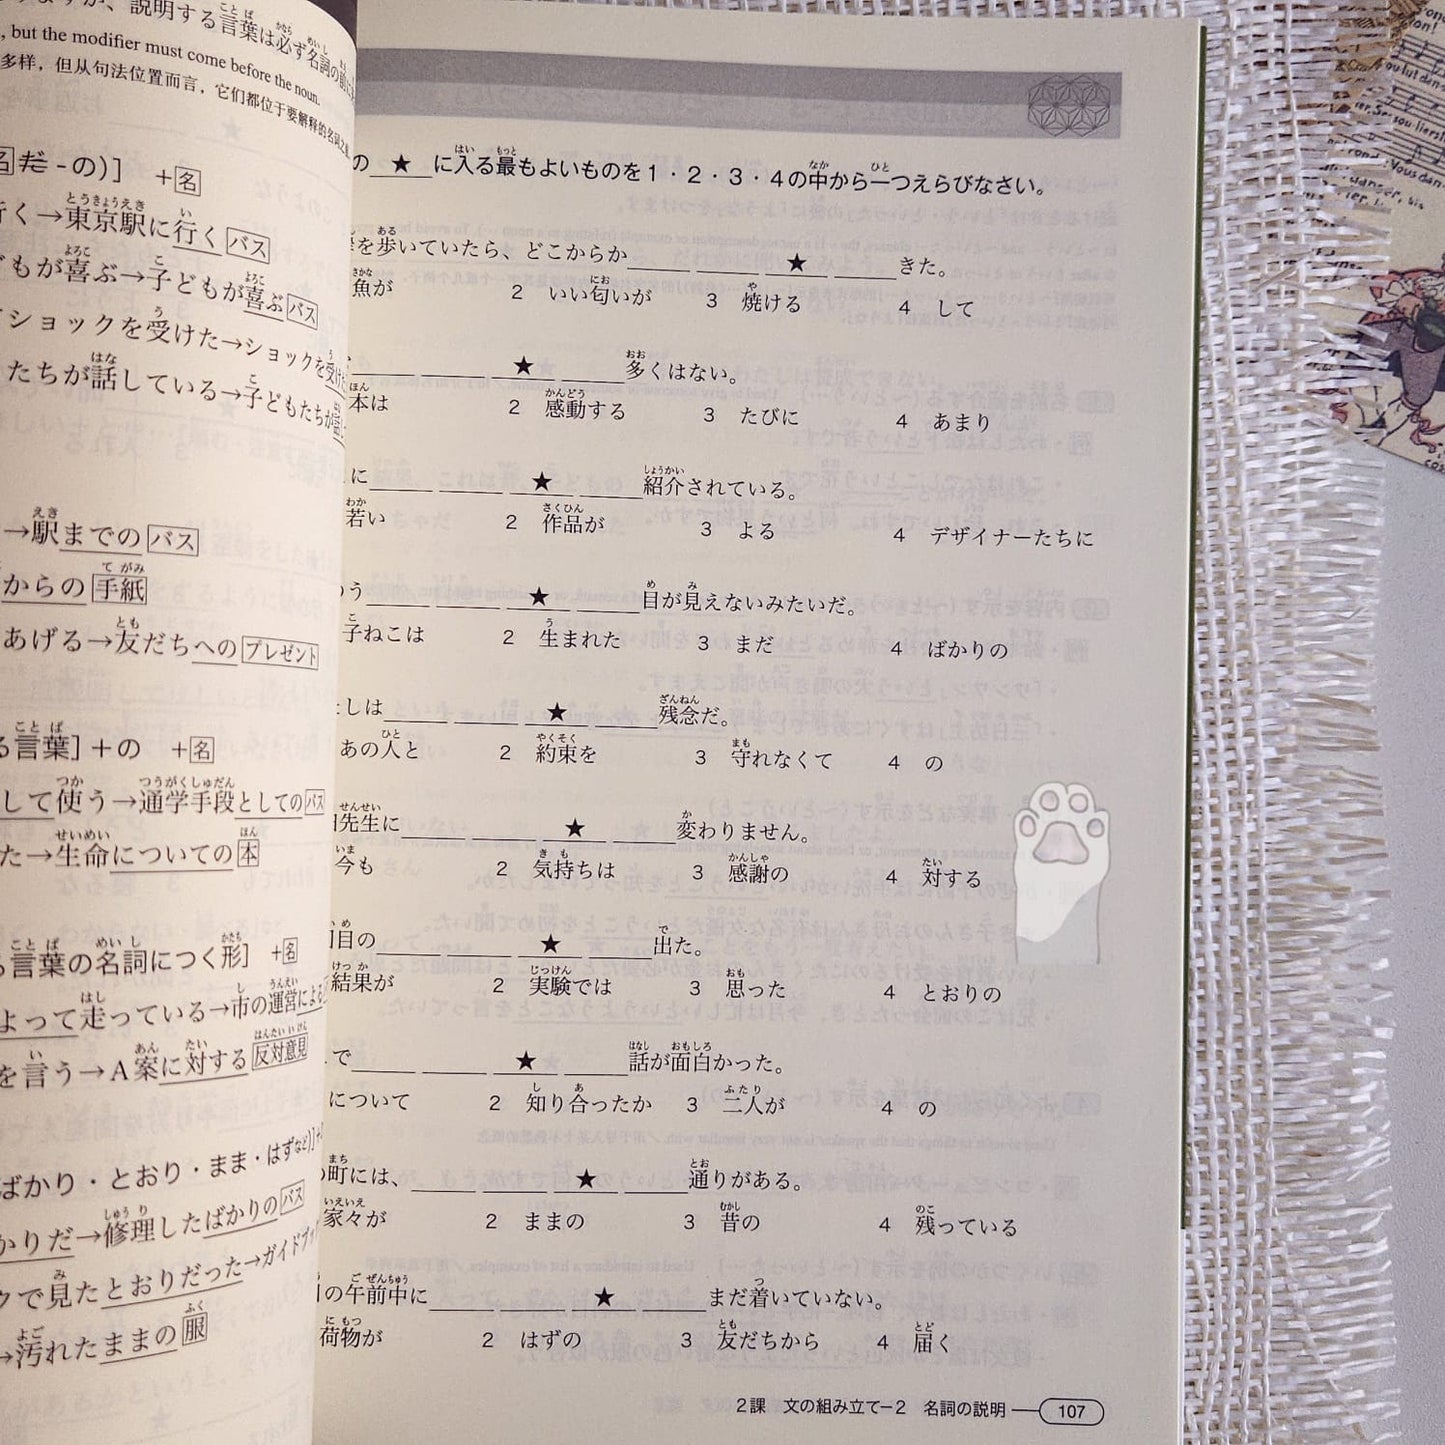 説明する言葉は必ず名詞の前に
, but the modifier must come before the noun.
多样，但从句法位置而言，它们都位于要解释的名词之
名だ -の)] +名
行く→東京駅に行くバス
どもが喜ぶ→子どもが喜ぶバス
ショックを受けた→ショックを受けた
たちが話している→子どもたちが話し
→駅までのバス
からの手紙
あげる→友だちへのプレゼント
る言葉]＋の +名
して使う→通学手段としてのバス
た→生命についての本
る言葉の名詞につく形] +名
よって走っている→市の運営による
を言う→A案に対する反対意見
ばかり・とおり・まま・はずなど)]
かりだ→修理したばかりのバス
クで見たとおりだった→ガイドブッ
→汚れたままの服
の ★ に入る最もよいものを1・2・3・4の中から一つえらびなさい。
を歩いていたら、どこからか____ ____ __★__ ____きた。
魚が 2 いい匂いが 3 焼ける 4 して
____ ____ __★__ ____多くはない。
本は 2 感動する 3 たびに 4 あまり
に____ ____ __★__ ____紹介されている。
若い 2 作品が 3 よる 4 デザイナーたちに
う____ ____ __★__ ____目が見えないみたいだ。
子ねこは 2 生まれた 3 まだ 4 ばかりの
しは____ ____ __★__ ____残念だ。
あの人と 2 約束を 3 守れなくて 4 の
先生に____ ____ __★__ ____変わりません。
今も 2 気持ちは 3 感謝の 4 対する
目の____ ____ __★__ ____出た。
結果が 2 実験では 3 思った 4 とおりの
で____ ____ __★__ ____話が面白かった。
について 2 知り合ったか 3 二人が 4 の
の町には、____ ____ __★__ ____通りがある。
家々が 2 ままの 3 昔の 4 残っている
の午前中に____ ____ __★__ ____まだ着いていない。
荷物が 2 はずの 3 友だちから 4 届く
2課 文の組み立て－2 名詞の説明 107